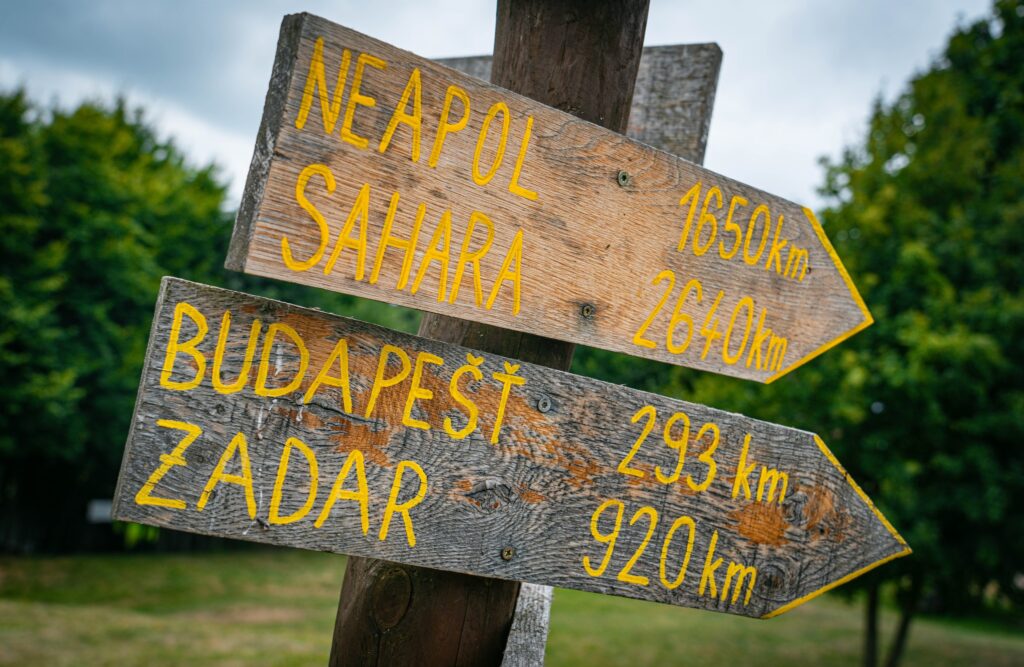 NEAPOL 1650km
SAHARA 2640km
BUDAPEŠŤ 293 km
ZADAR 920km